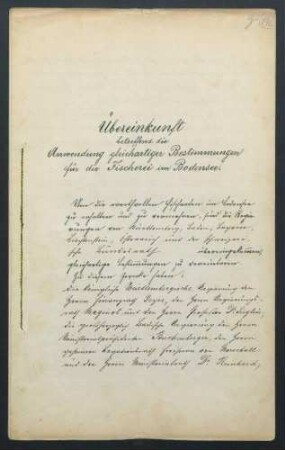 Übereinkunft
betreffend die
Anwendung gleichartiger Bestimmungen
für die Fischerei im Bodensee.
Um die werthvollen Fischarten im Bodensee
zu erhalten und zu vermehren, sind die Regie
rungen von Württemberg, Baden, Bayern,
Liechtenstein, Österreich und der schweizeri
sche Bundesrath übereingekommen,
gleichartige Bestimmungen zu vereinbaren.
Zu diesem Zwecke haben:
Die Königliche Württembergische Regierung den
Herrn Professor Dr.
die Großherzoglich Badische Regierung den Herrn
den Herrn
Freiherrn von
und den Herrn Ministerialrath Dr.